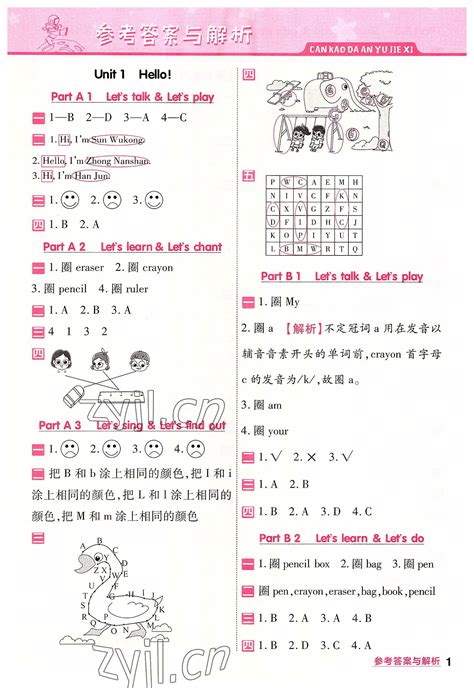 参考答案与解析
CAN KAO DA AN YU JIE XI
Unit 1 Hello!
Part A 1 Let's talk & Let's play
一 1—B 2—D 3—A 4—C
二 1. Hi, I'm Sun Wukong.
2. Hello, I'm Zhong Nanshan.
3. Hi, I'm Han Jun.
三 1. 2. 3.
四 1. B 2. A
Part A 2 Let's learn & Let's chant
一 1. 圈 eraser 2. 圈 crayon
3. 圈 pencil 4. 圈 ruler
二 1. A 2. B 3. A
三 4 1 3 2
四
Part A 3 Let's sing & Let's find out
一 1. 2. 3. 4.
二 把 B 和 b 涂上相同的颜色, 把 I 和 i
涂上相同的颜色, 把 L 和 l 涂上相同的
颜色, 把 M 和 m 涂上相同的颜色。
三
zyjl.cn
zyjl.cn
四
五
P W C A E M H
N I V C F K N
C X V G F S
D F I D H C J
K O P I Y U T
L B M W R T Q
Part B 1 Let's talk & Let's play
一 1. 圈 My
2. 圈 a 【解析】不定冠词 a 用在发音以
辅音音素开头的单词前, crayon 首字母
c 的发音为/k/, 故圈 a。
3. 圈 pen
4. 圈 am
二 1. √ 2. × 3. √
三 1. B 2. A 3. A
四 1. B 2. D 3. A 4. C
Part B 2 Let's learn & Let's do
一 1. 圈 pencil box 2. 圈 bag 3. 圈 pen
二 圈 pen, crayon, eraser, bag, book, pencil
三 1. B 2. A 3. A 4. B
四 1. B 2. D 3. C 4. A
参考答案与解析 1